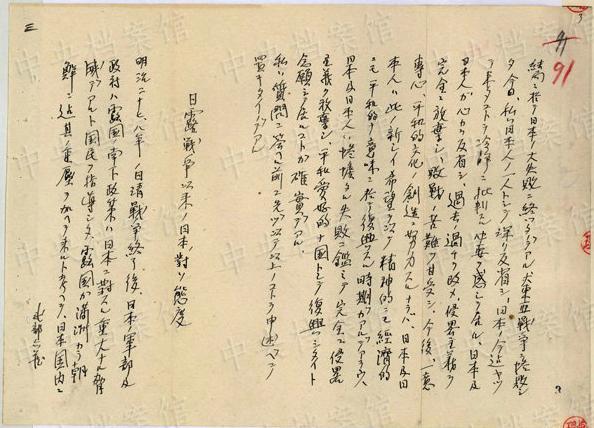 91
結局ニ於テ日本ノ大失敗ニ終ツタノデアル大東亜戦争ヲ
タ今日私ハ日本人ノ一人トシテ深ク反省シ、日本ガ今迄ヤツ
テ来タコトヲ冷静ニ批判スル必要ヲ感ジテ居ル、日本及
日本人ガ心カラ反省シ、過去ノ過チヲ改メ、侵畧主義ヲ
完全ニ放棄シ、敗戦ノ苦難ヲ甘受シ、今後一意
専心、平和的文化ノ創造ニ努力スルナラバ、日本及日
本人ハ此ノ新シイ希望ヲ以テ精神的ニモ経済的
ニモ、平和的ナ意味ニ於テ復興スル時期ガアルデアラウ、
日本及日本人ハ失敗ニ鑑ミテ完全ニ侵畧
主義ヲ放棄シ、平和愛好的ナ国トシテ復興シタイト
念願シテ居ルコトガ確実デアル、
私ハ質問ニ答ヘル前ニ先ヅ以上ノコトヲ申述ベテ
置キタイノデアル
日露戦争以来ノ日本ノ對ソ態度
明治二十七、八年ノ日清戦争終了後、日本ノ軍部及
政府ハ露国ノ南下政策ハ日本ニ對スル重大ナル脅
威デアルト国民ヲ指導シタ、露国ガ満洲カラ朝
鮮ニ迄其ノ重壓ヲ日本国内ニ
三
中央档案馆